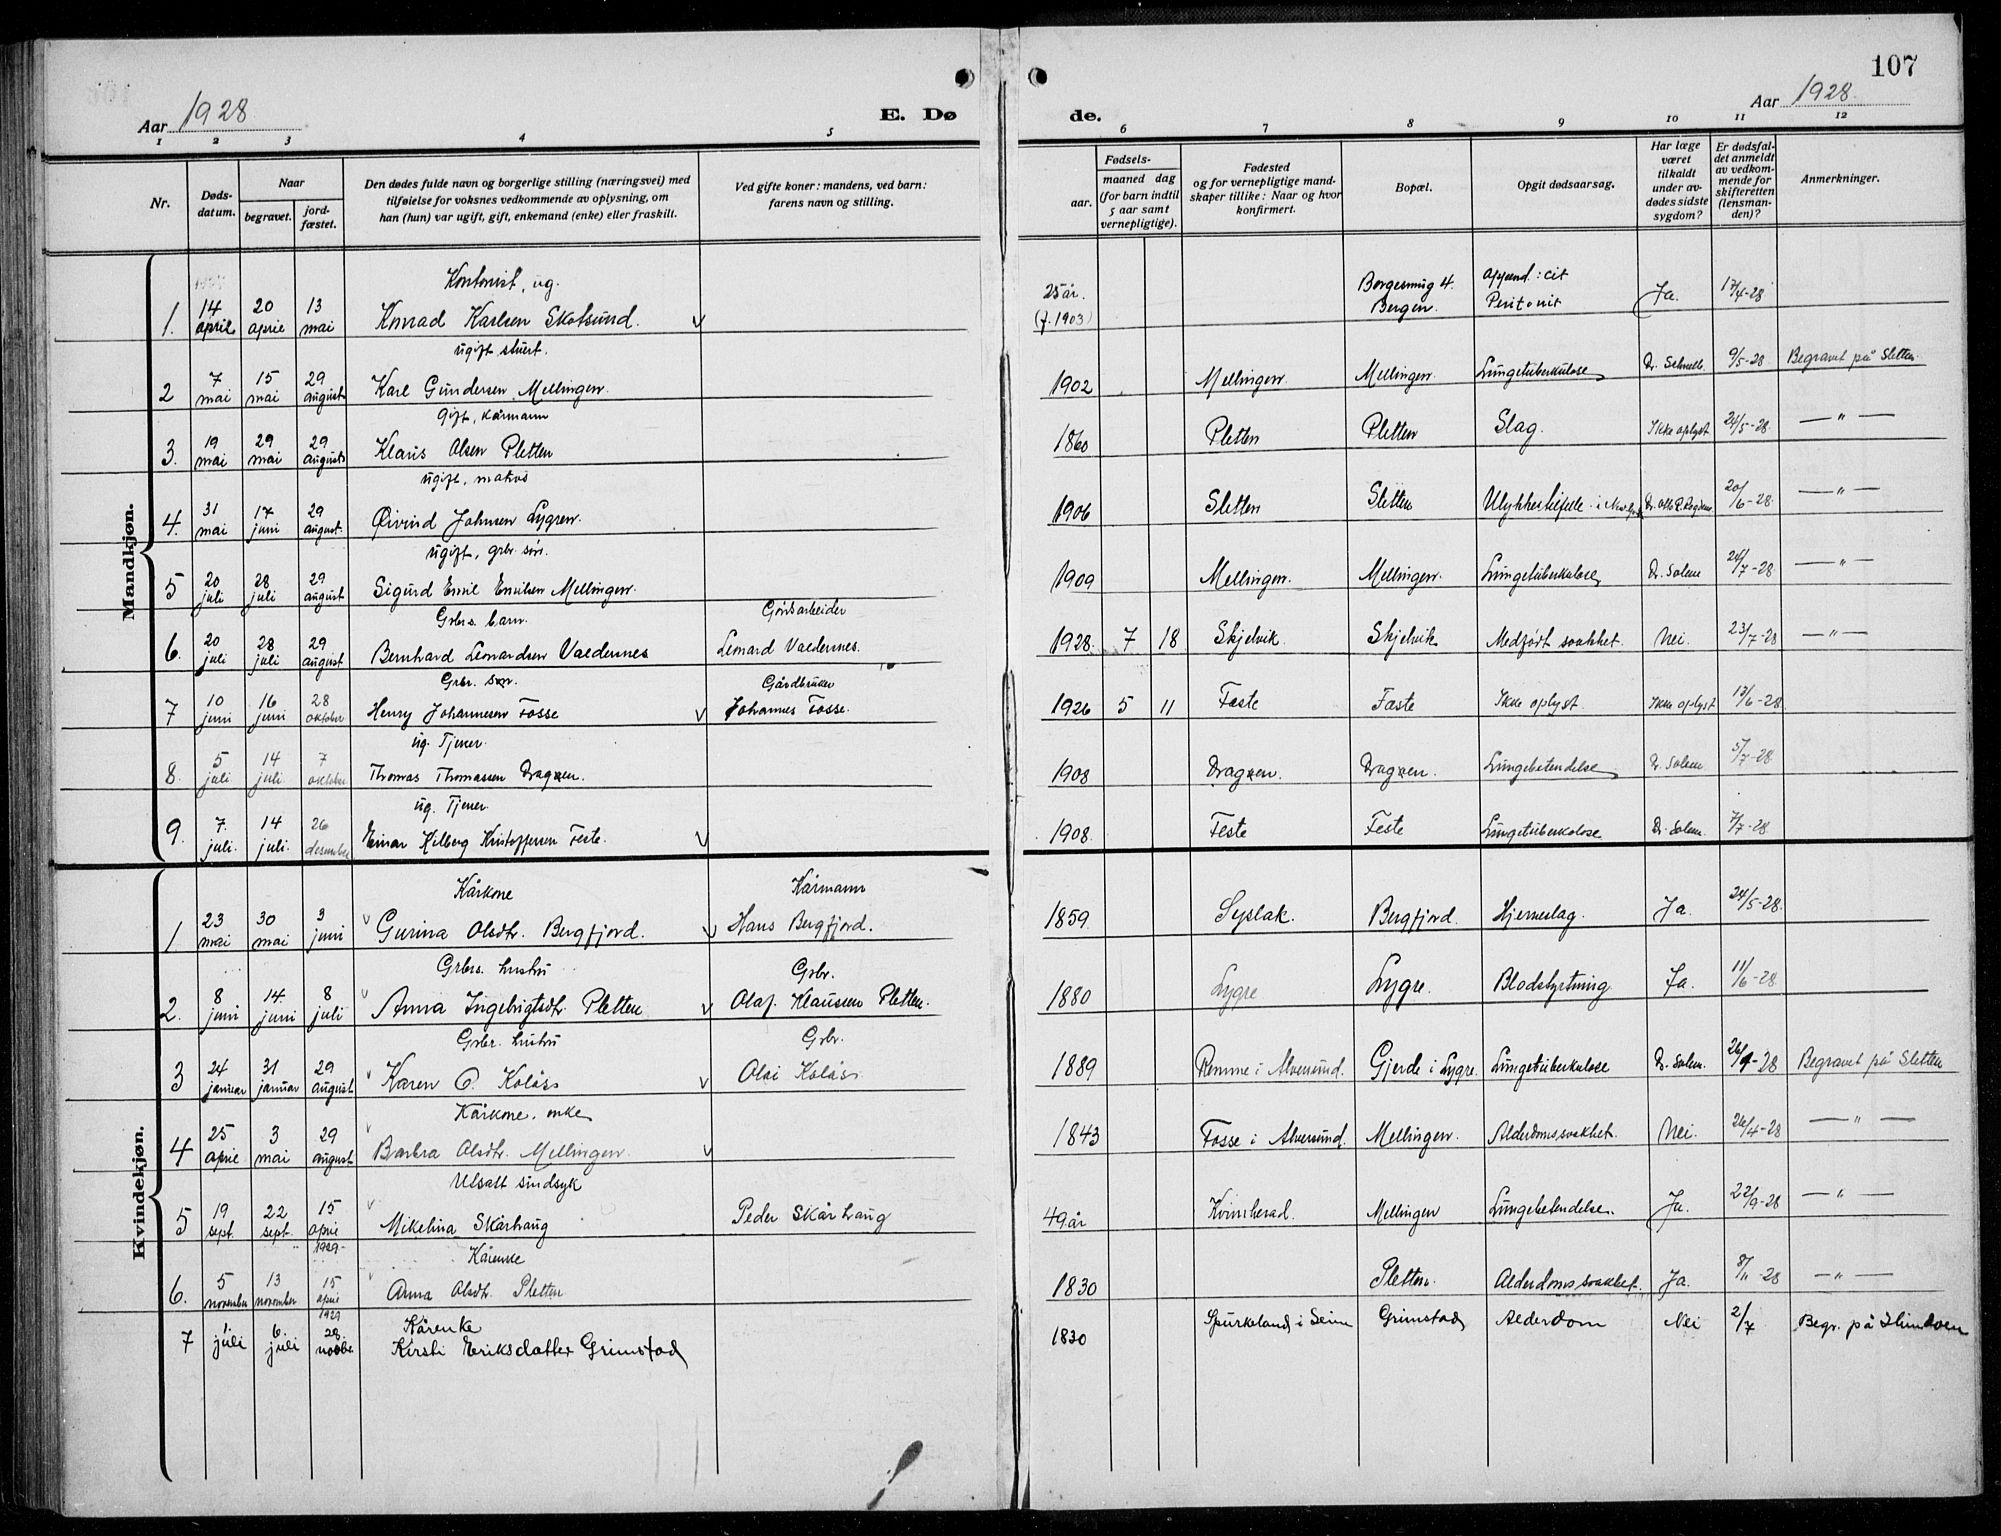 107
Aar 1928
E. Døde.
Aar 1928.
1 2 3 4 5 6 7 8 9 10 11 12
Nr.
Dødsdatum.
Naar
begravet.
jordfæstet.
Den dødes fulde navn og borgerlige stilling (næringsvei) med
tilføielse for voksnes vedkommende av oplysning, om
han (hun) var ugift, gift, enkemand (enke) eller fraskilt.
Ved gifte koner: mandens, ved barn:
farens navn og stilling.
Fødsels-
aar.
maaned dag
(for barn indtil
5 aar samt
vernepligtige).
Fødested
og for vernepligtige mand-
skaper tillike: Naar og hvor
konfirmert.
Bopæl.
Opgit dødsaarsag.
Har læge
været
tilkaldt
under av-
dødes sidste
sygdom?
Er dødsfal-
det anmeldt
av vedkom-
mende for
skifteretten
(lensman-
den)?
Anmerkninger.
Mandkjøn.
Kontorist, ug.
1. 14 april 20 april 13 mai Konrad Karlsen Skotsund. 25 år. (f. 1903) Bergen. Append:cit Peritonit Ja. 17/4-28
ugift stuert.
2 7 mai 15 mai 29 august Karl Gundersen Mellingen. 1902 Mellingen. Mellingen. Lungetuberkulose Dr. Schnell. 9/5-28 Begravet på Sletten.
Gift, kårmann
3. 19 mai 29 mai 29 august Klaus Olsen Pletten 1860 Pletten Pletten Slag. Ikke oplyst 24/5-28 — " —
ugift, matros
4. 31 mai 17 juni 29 august. Øivind Johnsen Lygren. 1906 Sletten Sletten 20/6-28 — " —
ugift, grbr. søn.
5 20 juli 28 juli 29 august Sigurd Emil Emilsen Mellingen. 1909 Mellingen. Mellingen. Lungetuberkulose Dr. Solem 24/7-28 — " —
Grbrs. barn. Gårdsarbeider
6. 20 juli 28 juli 29 august Bernhard Leonardsen Valdernes Leonard Valdernes. 1928. 7 18 Skjelvik. Skjelvik Medfødt svakhet. Nei. 23/7-28 — " —
Grbr. søn. Gårdbruker
7 10 juni 16 juni 28 oktober Henry Johannesen Fosse Johannes Fosse. 1926 5 11 Feste Feste Ikke oplyst. Ikke oplyst 13/6-28
ug. Tjener.
8. 5 juli 14 juli 7 oktober Thomas Thomassen Dragøen. 1908 Dragøen. Dragøen. Lungebetendelse Dr. Solem 5/7-28
ug. Tjener.
9. 7. juli. 14 juli. 26 desember Einar Hilberg Kristoffersen Feste. 1908. Feste Feste Lungetuberkulose. Dr. Solem. 7/7-28
Kvindekjøn.
Kårkone Kårmann
1 23 mai 30 mai 3 juni Gurina Olsdtr. Bergfjord. Hans Bergfjord. 1859. Syslak. Bergfjord. Hjerneslag. Ja. 24/5-28.
Grbrs. hustru Grbr.
2. 8 juni 14. juni 8 juli Anna Ingebrigtsdtr. Pletten Olaf Klausen Pletten. 1880 Lygre Lygre. Blodstyrtning. Ja. 11/6-28
Grbr. hustru Grbr.
3 24 januar 31 januar 29 august Karen O. Kolåss Olai Kolåss. 1889 Remme i Alversund. Gjerde i Lygre. Lungetuberkulose Dr. Solem. 26/1-28 Begravet på Sletten
Kårkone, enke
4 25 april 3 mai 29 august Barbra Olsdtr. Mellingen. 1843 Fosse i Alversund. Mellingen. Alderdomssvakhet. Nei. 26/4-28 — " —
Utsatt sindsyk
5 19 sept. 22 sept. 15 april 1929 Mikelina Skårhaug Peder Skårhaug 49 år Kvinherad. Mellingen Lungebetendelse. Ja. 22/9-28 — " —
Kårenke
6. 5 november 13 november 15 april 1929 Anna Olsdtr. Pletten 1830 Pletten. Alderdomssvakhet. Ja. 8/11-28 — " —
Kårenke
7 1. juli 6. juli 28. novbr. Kirsti Eriksdatter Grimstad 1830 Spurkeland i Seim Grimstad Alderdom Nei 2/7 Begr. på